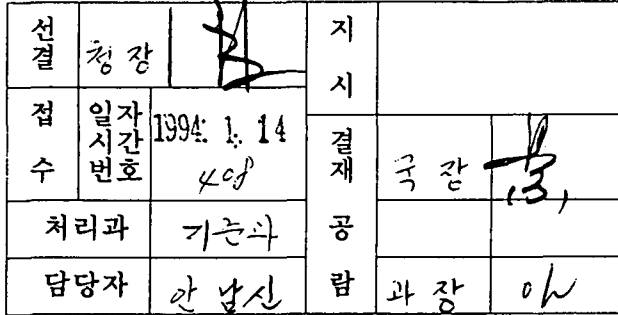 선결 청장 지시
접수 일자 시간 번호 1994. 1. 14 408
결재 공람 국장
처리과 기준과
담당자 안남신 과장